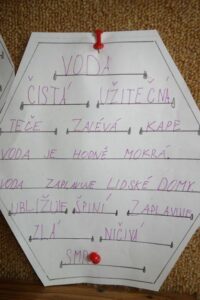 VODA
ČISTÁ UŽITEČNÁ
TEČE ZALÉVÁ KAPE
VODA JE HODNĚ MOKRÁ.
VODA ZAPLAVUJE LIDSKÉ DOMY
UBLIŽUJE ŠPINÍ ZAPLAVUJE
ZLÁ NIČIVÁ